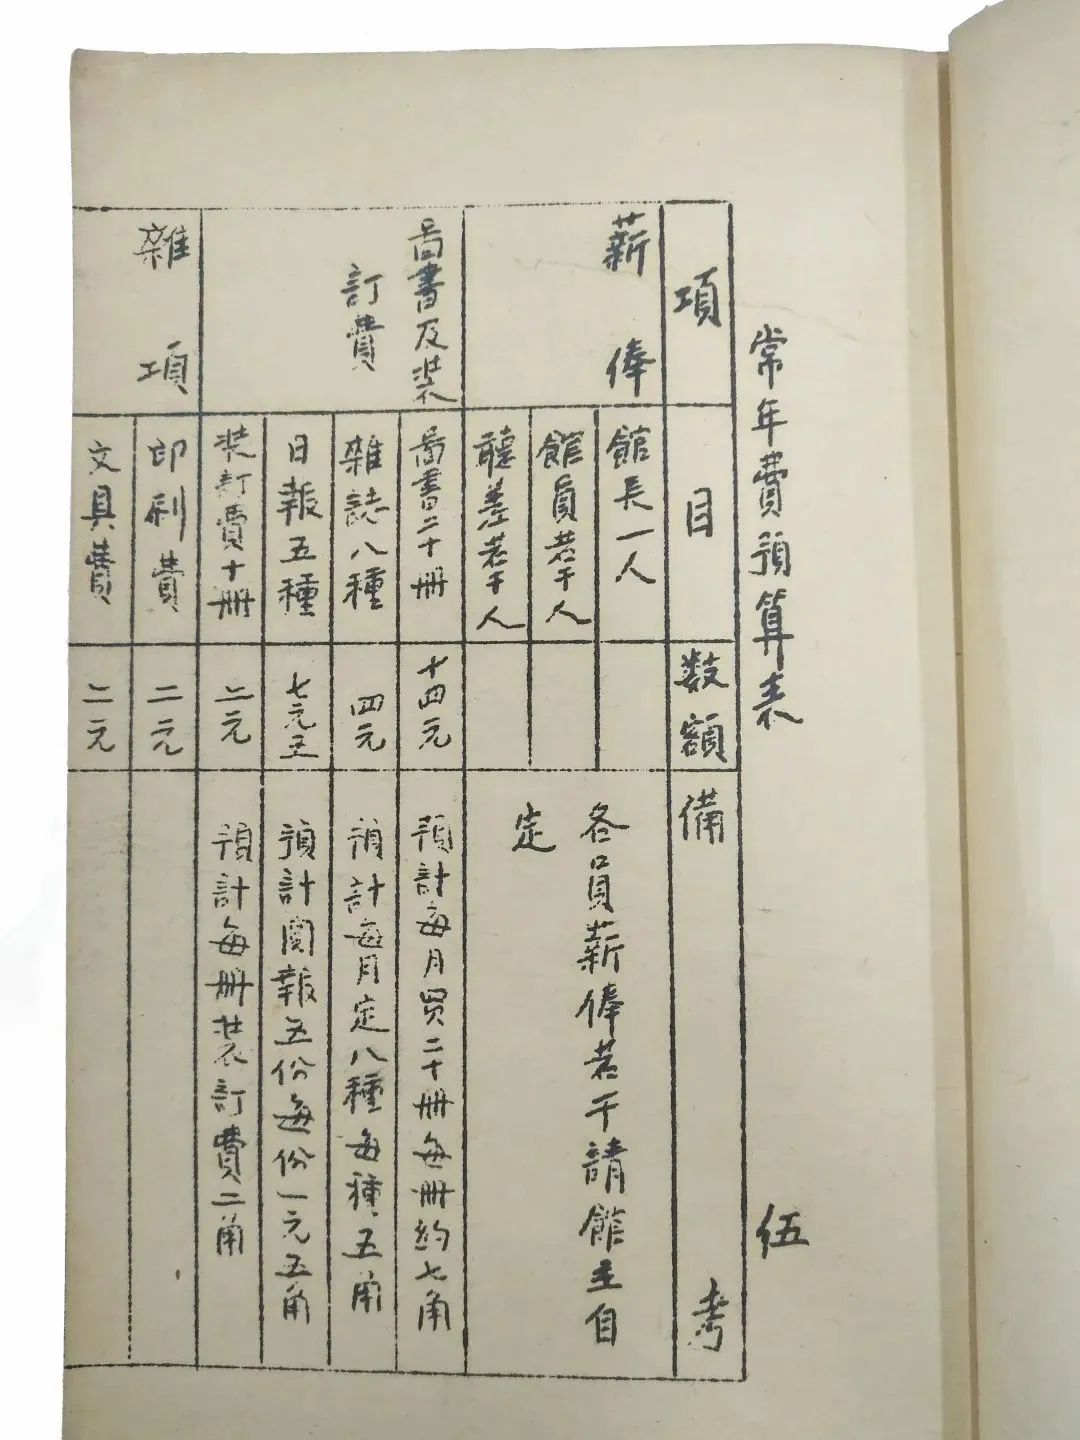 常年費預算表 伍
項 目 数額 備考
薪俸
館長一人
館員若干人
聽差若干人
各員薪俸若干請館主自
定
啚書及装
訂費
啚書二十冊 十四元 預計每月買二十冊每冊約七角
雜誌八種 四元 預計每月定八種每種五角
日報五種 七元五 預計閱報五份每份一元五角
装訂費十冊 二元 預計每冊装訂費二角
雜項
印刷費 二元
文具費 二元